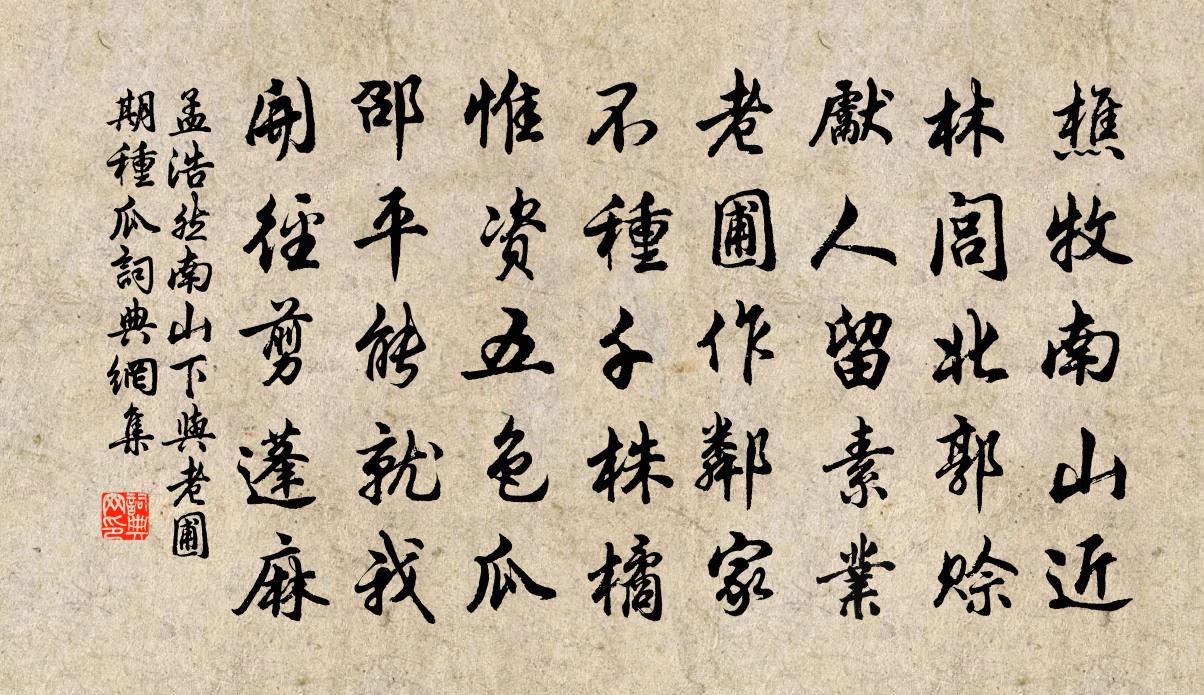 樵牧南山近
林閭北郭賒
獻人留素業
老圃作鄰家
不種千株橘
惟資五色瓜
邵平能就我
開徑剪蓬麻
孟浩然南山下與老圃
期種瓜詞典網集
詞典网印